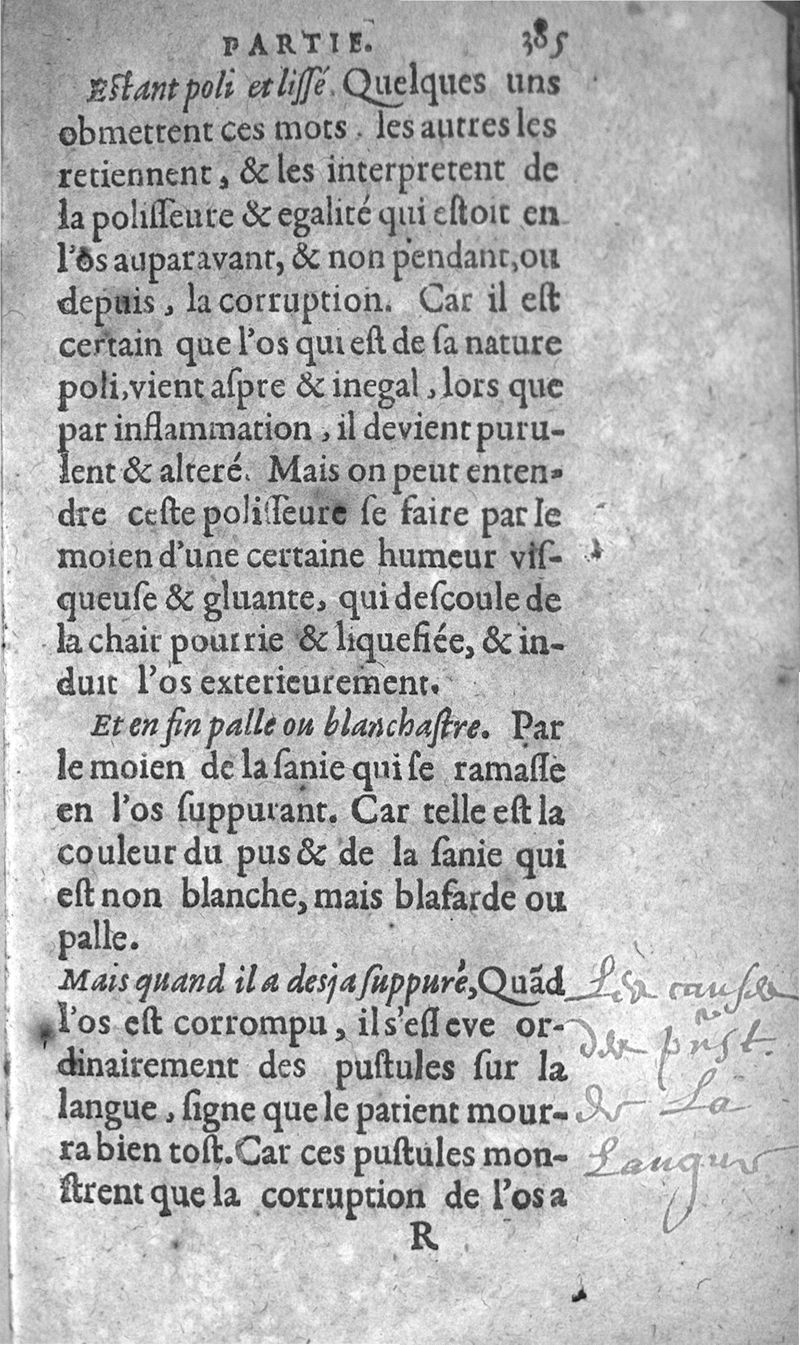 PARTIE. 385
Estant poli et lissé. Quelques uns
obmettent ces mots. les autres les
retiennent, & les interpretent de
la polisseure & egalité qui estoit en
l'os auparavant, & non pendant, ou
depuis, la corruption. Car il est
certain que l'os qui est de sa nature
poli, vient aspre & inegal, lors que
par inflammation, il devient puru-
lent & alteré. Mais on peut enten-
dre ceste polisseure se faire par le
moien d'une certaine humeur vis-
queuse & gluante, qui descoule de
la chair pourrie & liquefiée, & in-
duit l'os exterieurement.
Et en fin palle ou blanchastre. Par
le moien de la sanie qui se ramasse
en l'os suppurant. Car telle est la
couleur du pus & de la sanie qui
est non blanche, mais blafarde ou
palle.
Mais quand il a desja suppuré, Quãd
l'os est corrompu, il s'esleve or-
dinairement des pustules sur la
langue, signe que le patient mour-
ra bien tost. Car ces pustules mon-
strent que la corruption de l'os a
R
causes
de pust.
de La
Langue